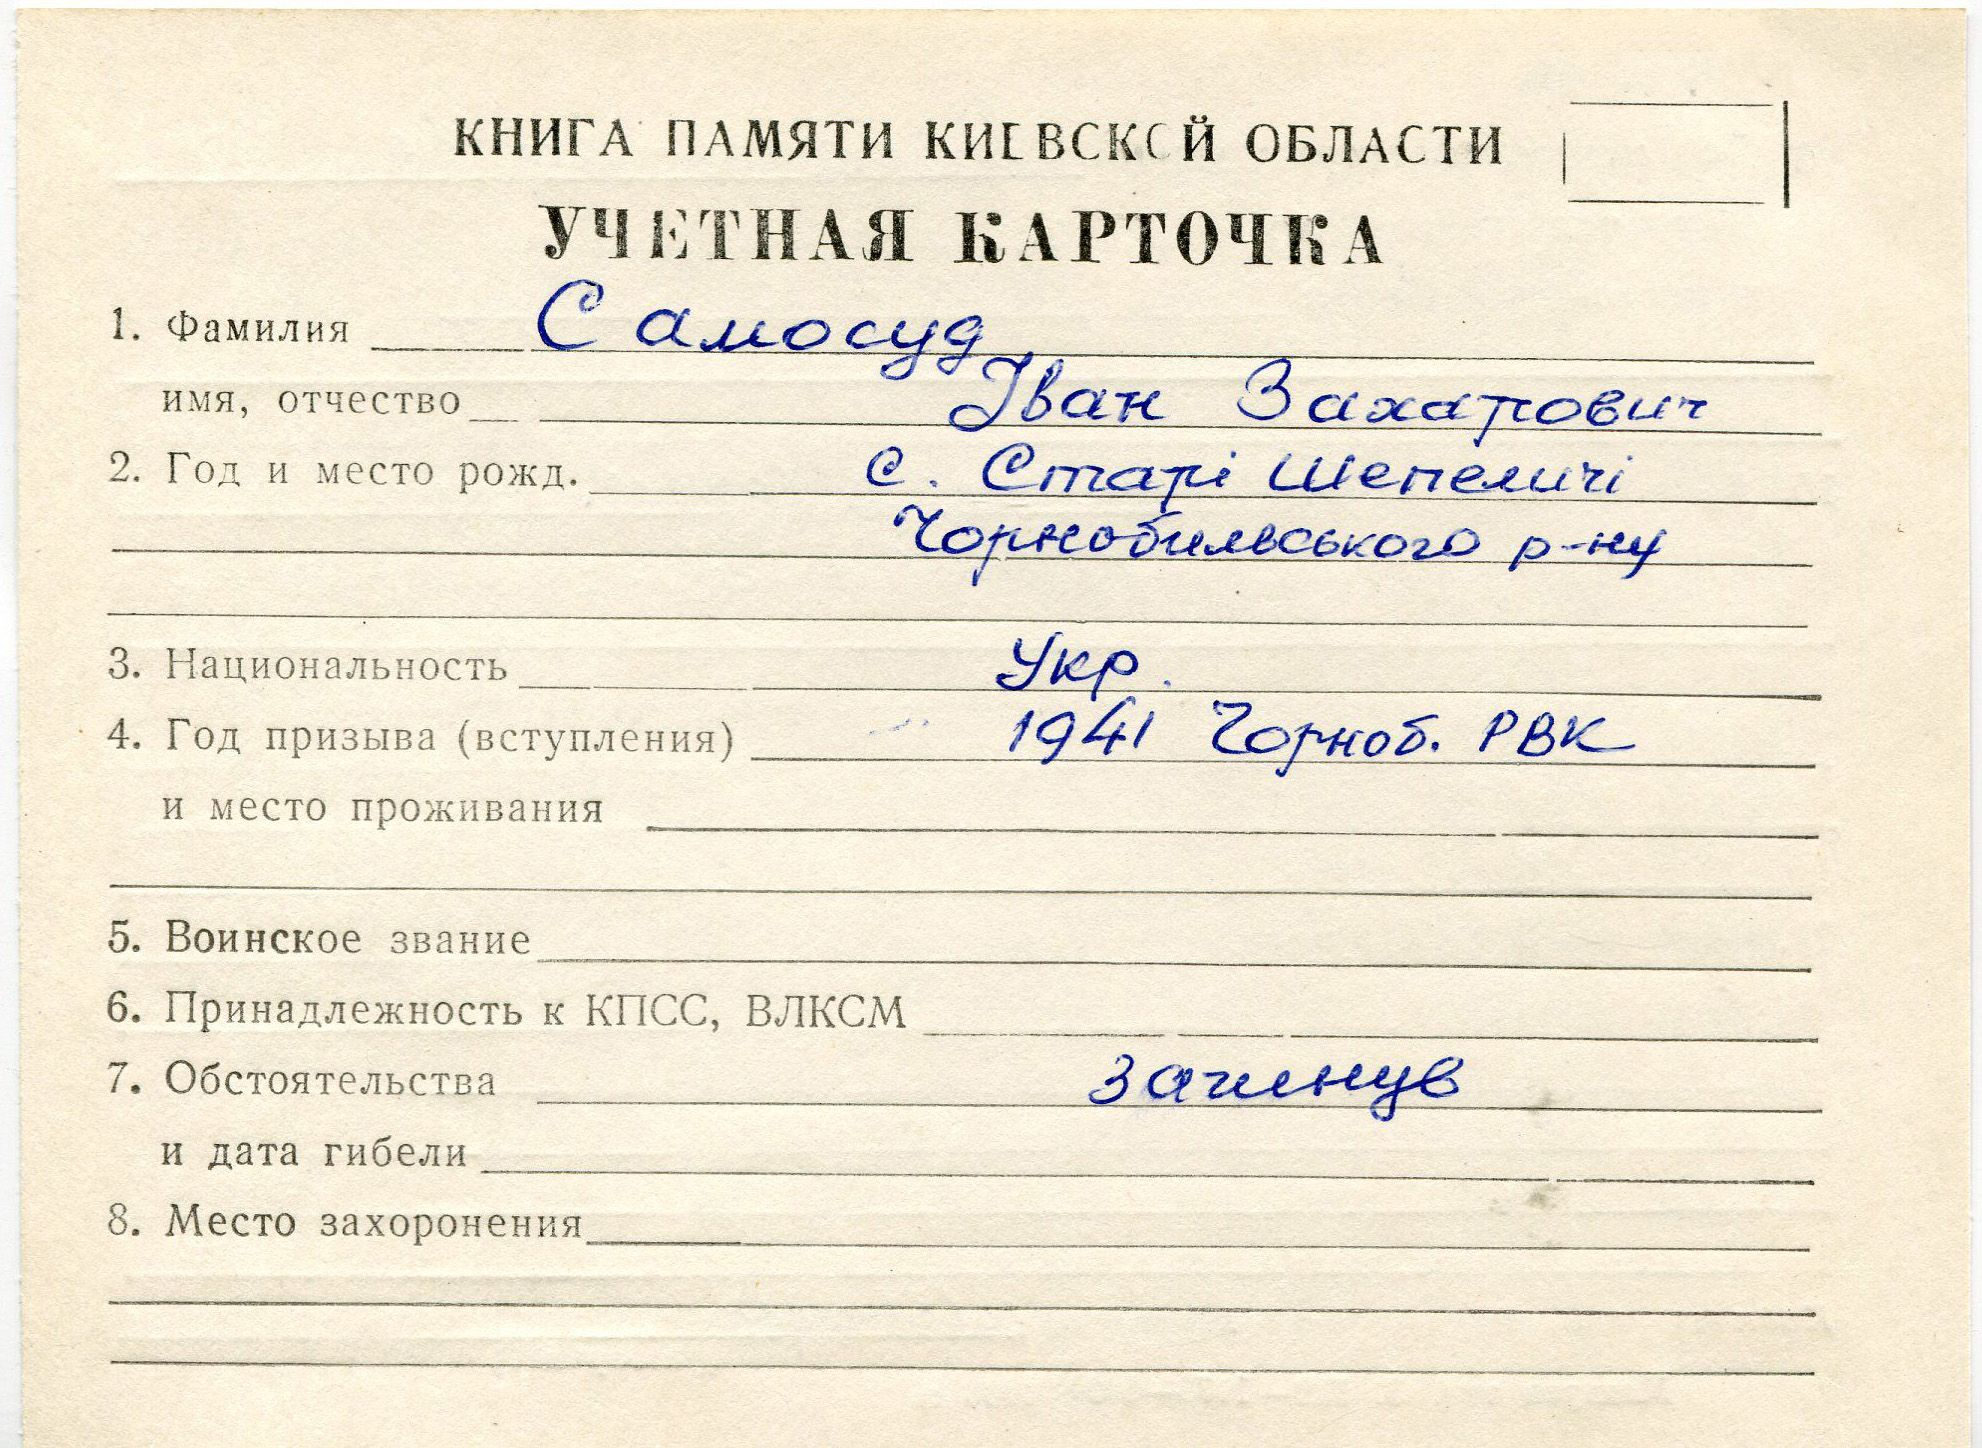 КНИГА ПАМЯТИ КИЕВСКОЙ ОБЛАСТИ
УЧЕТНАЯ КАРТОЧКА
1. Фамилия Самосуд
имя, отчество Іван Захарович
2. Год и место рожд. с. Старі Шепеличі
Чорнобильського р-ну
3. Национальность Укр.
4. Год призыва (вступления) 1941 Чорноб. РВК
и место проживания
5. Воинское звание
6. Принадлежность к КПСС, ВЛКСМ
7. Обстоятельства загинув
и дата гибели
8. Место захоронения